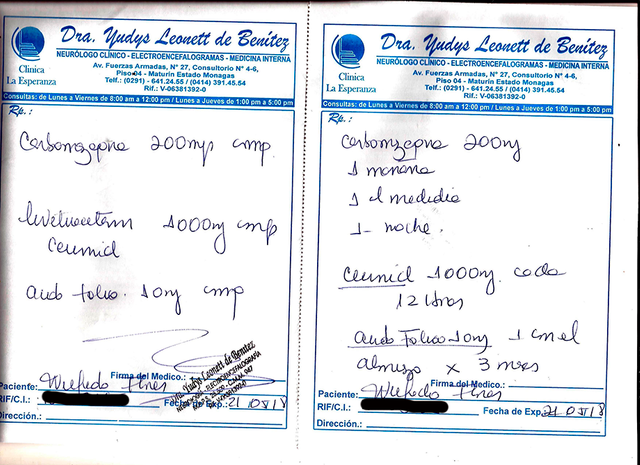 Dra. Yudys Leonett de Benítez
NEURÓLOGO CLÍNICO - ELECTROENCEFALOGRAMAS - MEDICINA INTERNA
Av. Fuerzas Armadas, N° 27, Consultorio N° 4-6,
Piso 04 - Maturín Estado Monagas
Telf.: (0291) - 641.24.55 / (0414) 391.45.54
Rif.: V-06381392-0
Clínica
La Esperanza
Consultas: de Lunes a Viernes de 8:00 am a 12:00 pm / Lunes a Jueves de 1:00 pm a 5:00 pm
Rp.:
Carbamazepina 200mg cmp
1000mg cmp
Ceumid
acido folico. 10mg cmp
Firma del Medico.:
Dra. Yudys Leonett de Benítez
Paciente: Wilfredo
RIF/C.I.:
Fecha de Exp.: 21
Dirección.:
Dra. Yudys Leonett de Benítez
NEURÓLOGO CLÍNICO - ELECTROENCEFALOGRAMAS - MEDICINA INTERNA
Av. Fuerzas Armadas, N° 27, Consultorio N° 4-6,
Piso 04 - Maturín Estado Monagas
Telf.: (0291) - 641.24.55 / (0414) 391.45.54
Rif.: V-06381392-0
Clínica
La Esperanza
Consultas: de Lunes a Viernes de 8:00 am a 12:00 pm / Lunes a Jueves de 1:00 pm a 5:00 pm
Rp.:
Carbamazepina 200mg
1 mañana
1 al mediodia
1 noche.
Ceumid 1000mg. cada
12 horas
acido Folico 10mg 1 en el
almuerzo x 3 meses
Firma del Medico.:
Paciente: Wilfredo
RIF/C.I.:
Fecha de Exp. 21
Dirección.: